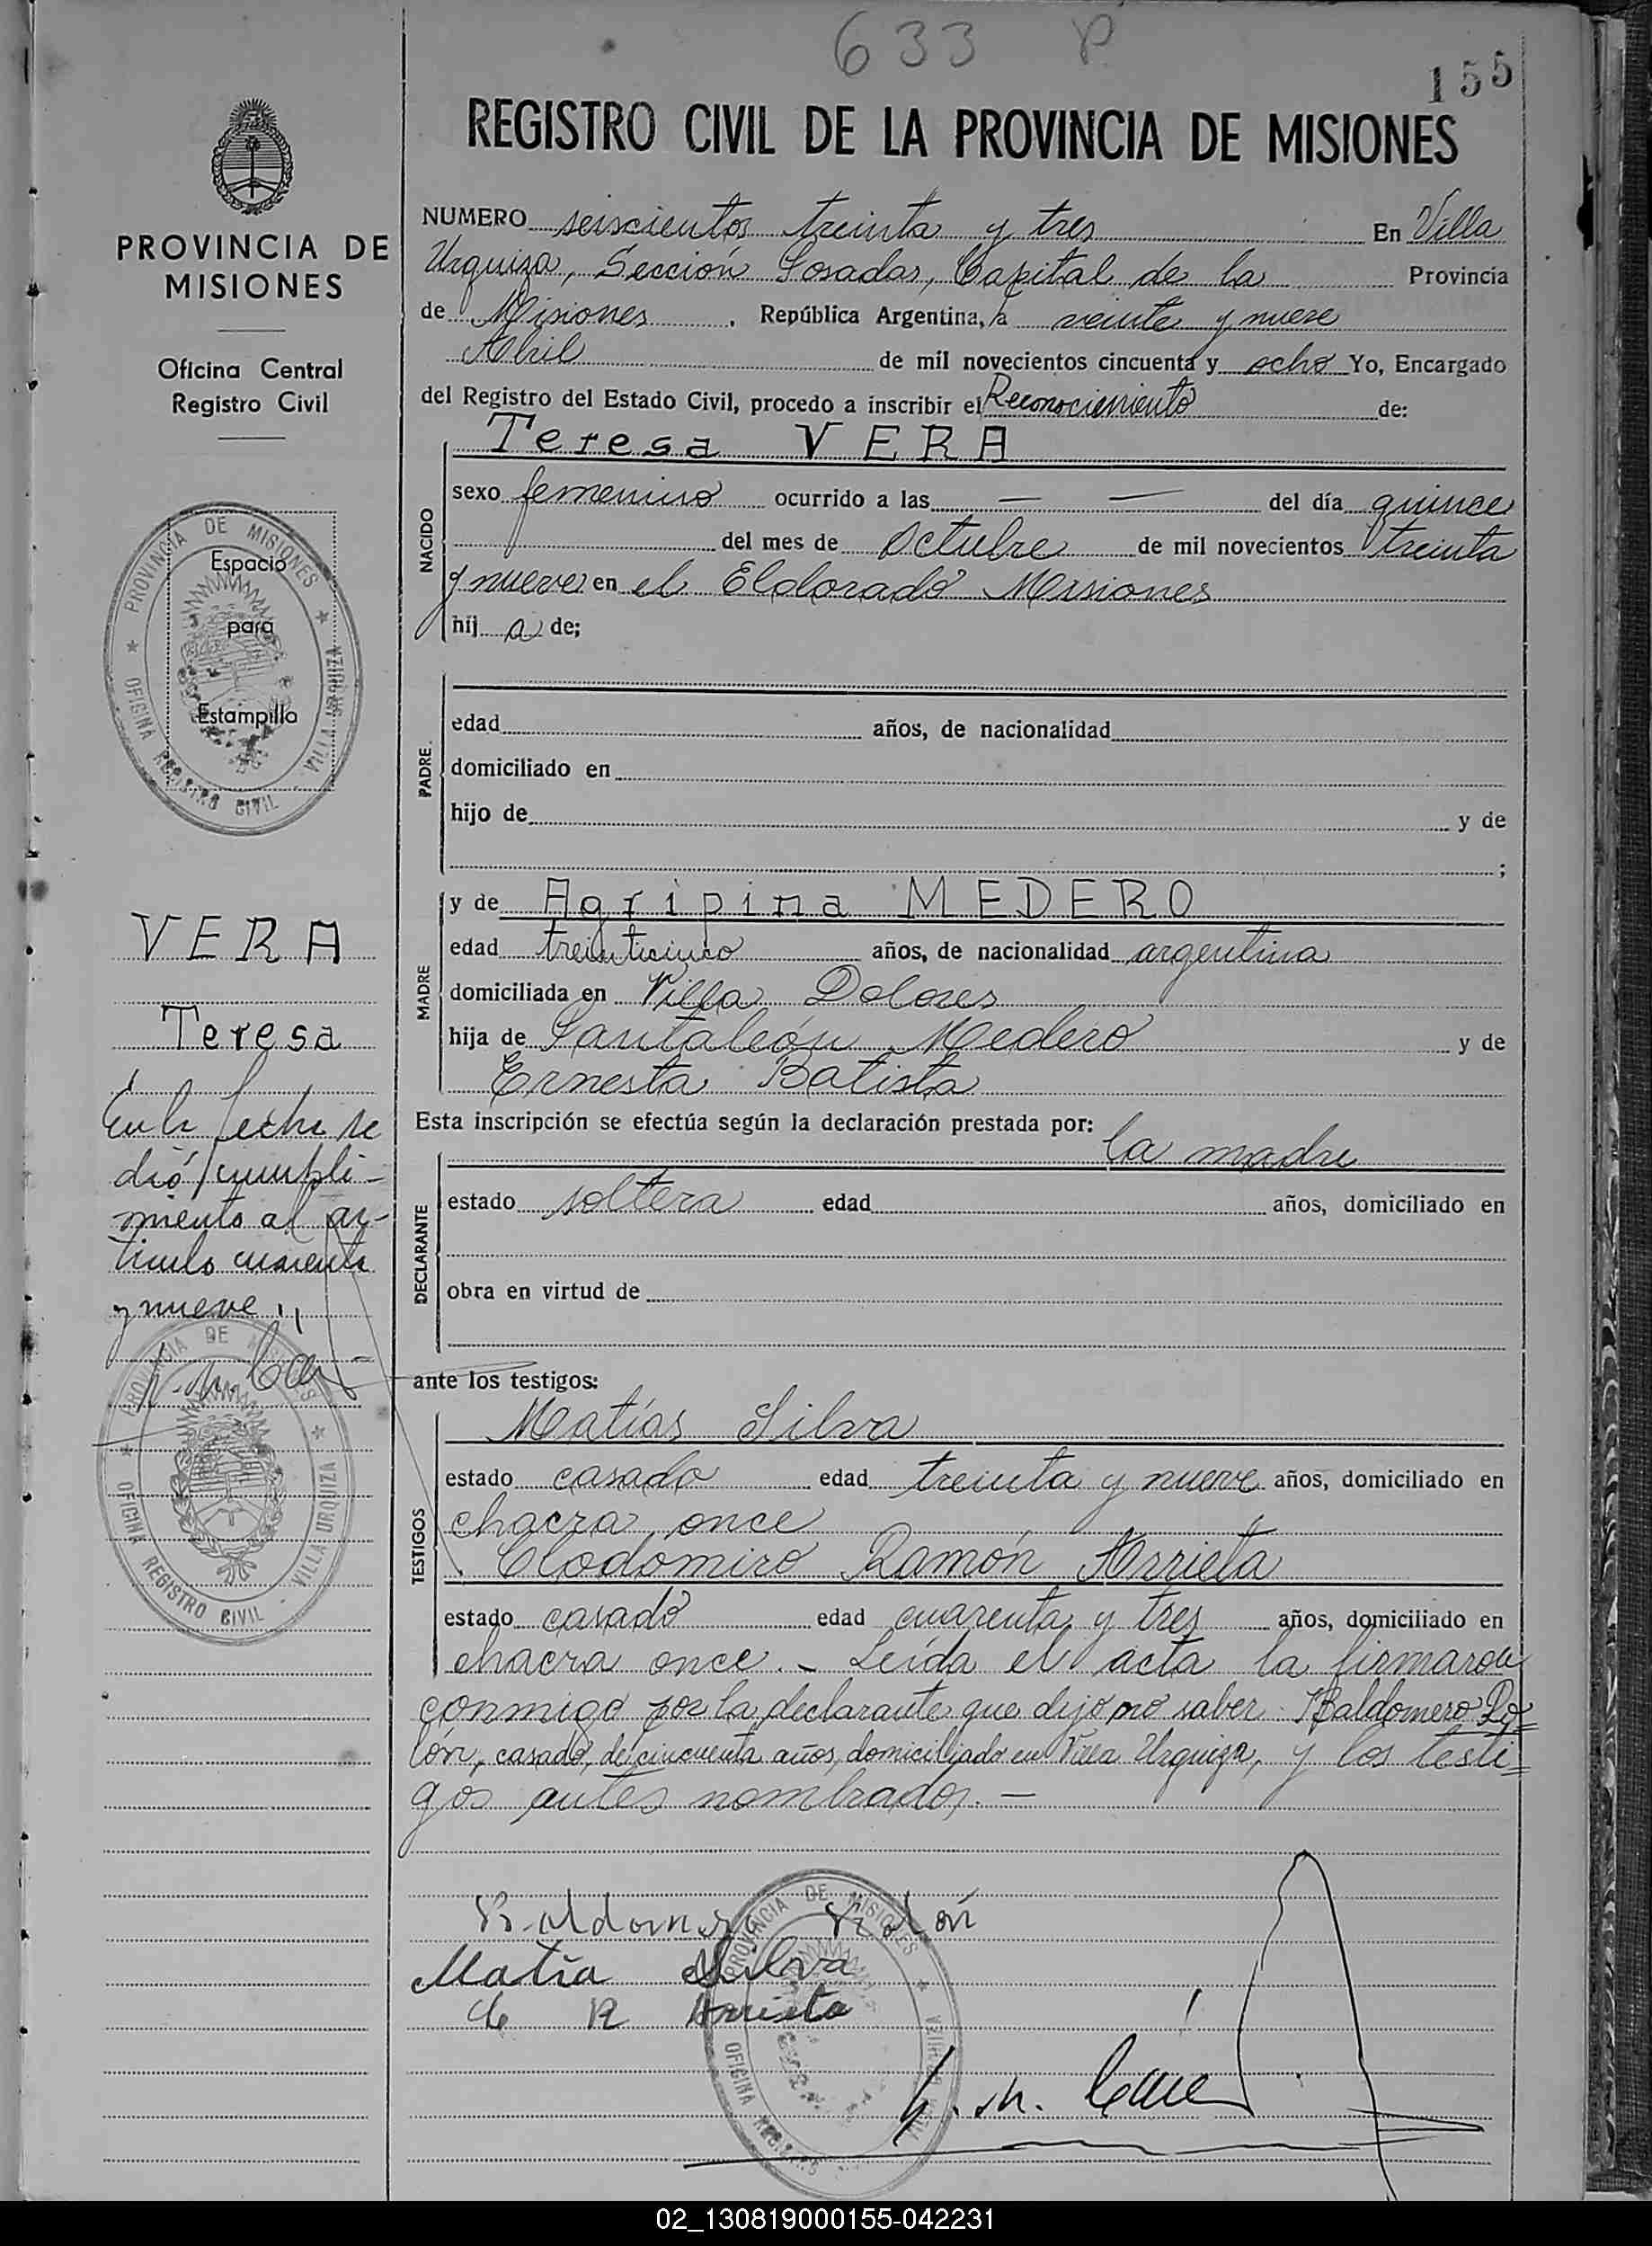 633 P
155
REGISTRO CIVIL DE LA PROVINCIA DE MISIONES
PROVINCIA DE
MISIONES
Oficina Central
Registro Civil
PROVINCIA DE MISIONES
Espacio
para
Estampilla
OFICINA REGISTRO CIVIL - VILLA URQUIZA
VERA
Teresa
En la fecha se
dió cumpli-
miento al ar-
tículo cuarenta
y nueve
PROVINCIA DE MISIONES
OFICINA REGISTRO CIVIL - VILLA URQUIZA
NUMERO seiscientos treinta y tres En Villa
Urquiza, Sección Posadas, Capital de la Provincia
de Misiones, República Argentina, a veinte y nueve
Abril de mil novecientos cincuenta y ocho Yo, Encargado
del Registro del Estado Civil, procedo a inscribir el Reconocimiento de:
NACIDO
Teresa VERA
sexo femenino ocurrido a las — — del día quince
del mes de Octubre de mil novecientos treinta
y nueve en el Eldorado Misiones
hij a de;
PADRE
edad años, de nacionalidad
domiciliado en
hijo de y de
;
MADRE
y de Agripina MEDERO
edad treinticinco años, de nacionalidad argentina
domiciliada en Villa Dolores
hija de Pantaleón Medero y de
Ernesta Batista
Esta inscripción se efectúa según la declaración prestada por:
DECLARANTE
la madre
estado soltera edad años, domiciliado en
obra en virtud de
ante los testigos:
TESTIGOS
Matías Silva
estado casado edad treinta y nueve años, domiciliado en
chacra once
Clodómiro Ramón Arrieta
estado casado edad cuarenta y tres años, domiciliado en
chacra once. - Leída el acta la firmaron
conmigo por la declarante que dijo no saber Baldomero
casado, de cincuenta años, domiciliado en Villa Urquiza, y los testi=
gos antes nombrados. —
Baldomero
Matia Silva
C R Arrieta
PROVINCIA DE MISIONES
OFICINA REGISTRO CIVIL
02_130819000155-042231